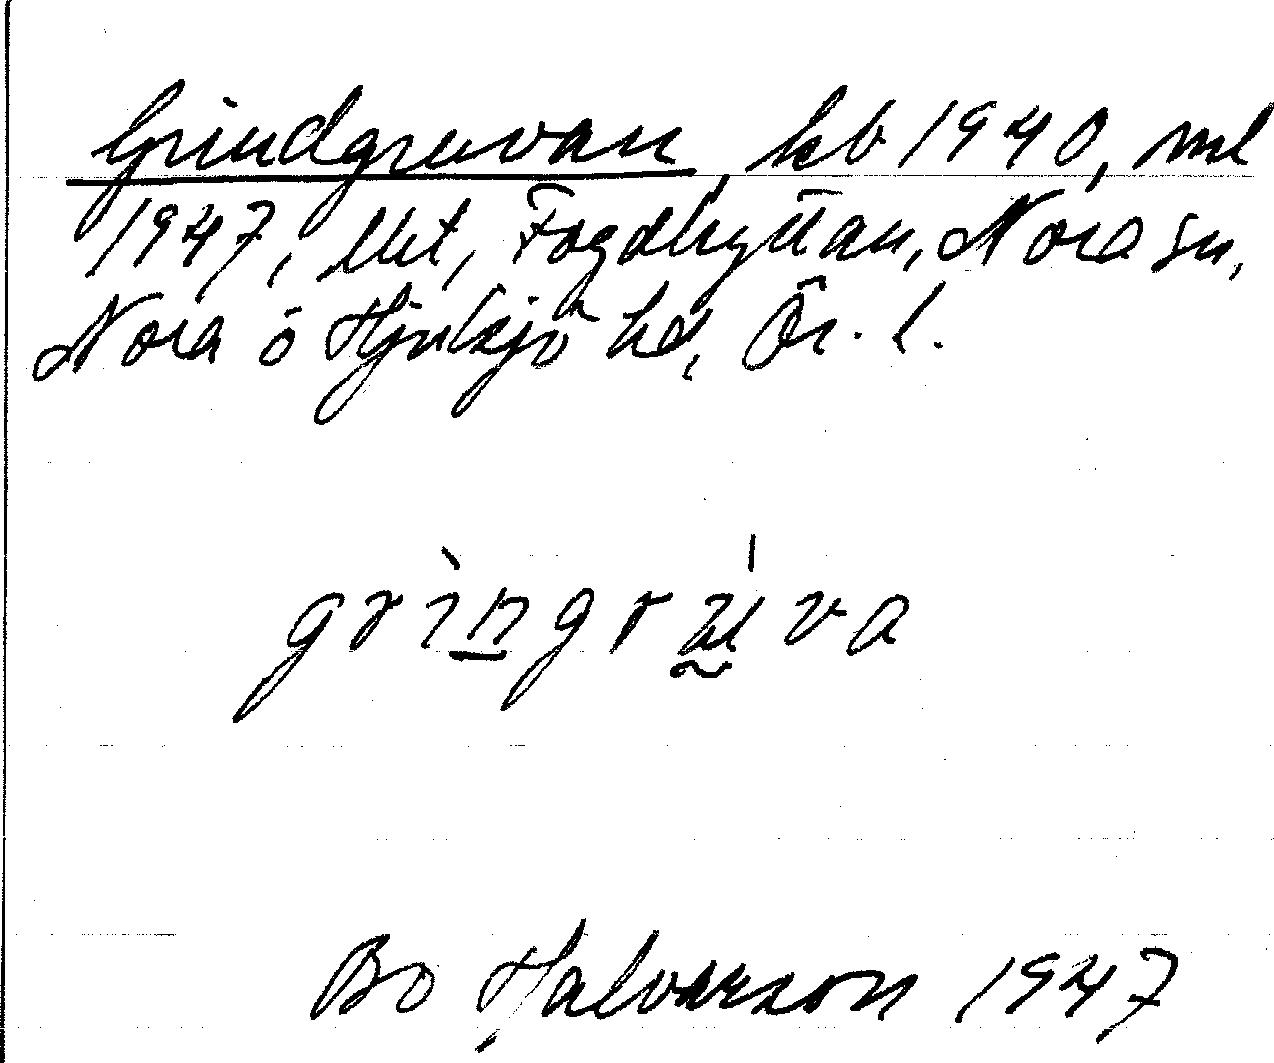 Grindgruvan, kb 1940, ml
1947, Fogdhyttan, Nora sn,
Nora o Hjulsjö hd, Ör. l.
grìngrṵva
Bo Halvarson 1947